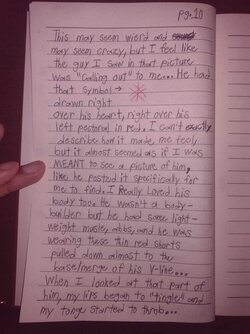 pg.10
This may seem wierd and
may seem crazy, but I feel like
the guy I saw in that picture
was "calling out" to me... He had
that symbol →
drawn right
over his heart, right over his
left pectoral in red. I can't exactly
describe how it made me feel,
but it almost seemed as if I was
MEANT to see a picture of him,
like he posted it specifically for
me to find. I Really Loved his
body too. He wasn't a body-
builder but he had some light-
weight muscle, abbs, and he was
wearing these thin red shorts
pulled down almost to the
base/merge of his V-line...
When I looked at that part of
him, my lips began to "tingle" and
my tonge started to throb...